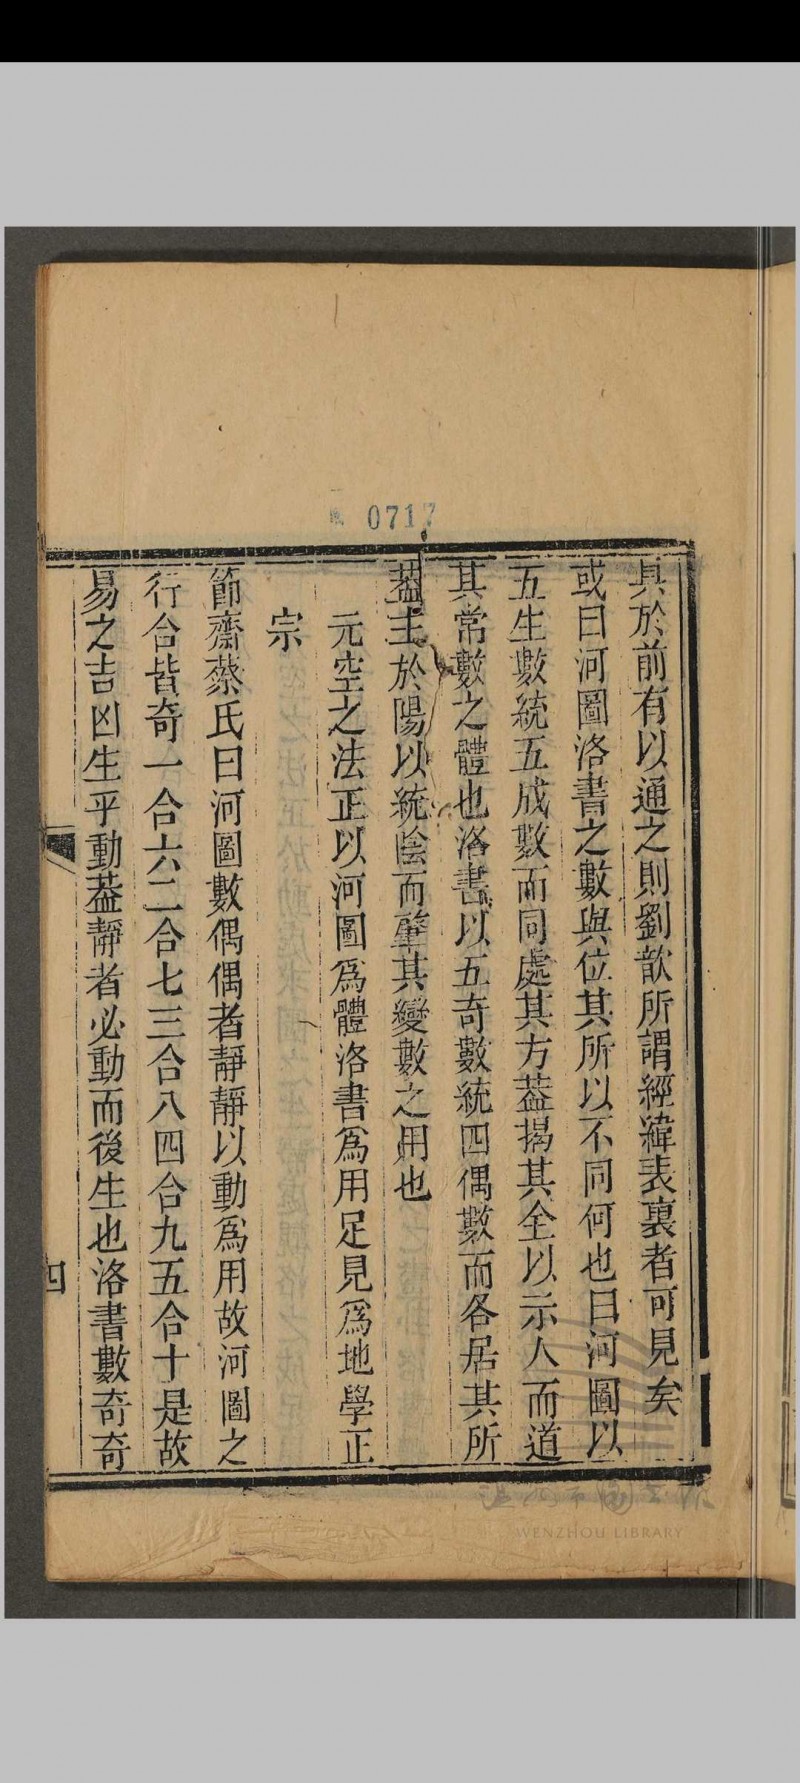 0717
具於前有以通之則劉歆所謂經緯表裏者可見矣
或曰河圖洛書之數與位其所以不同何也曰河圖以
五生數統五成數而同處其方葢揭其全以示人而道
其常數之體也洛書以五奇數統四偶數而各居其所
葢主於陽以統陰而肇其變數之用也
元空之法正以河圖爲體洛書爲用足見爲地學正
宗
節齋蔡氏曰河圖數偶偶者靜靜以動爲用故河圖之
行合皆奇一合六二合七三合八四合九五合十是故
易之吉凶生乎動葢靜者必動而後生也洛書數奇奇
四
WENZHOU LIBRARY